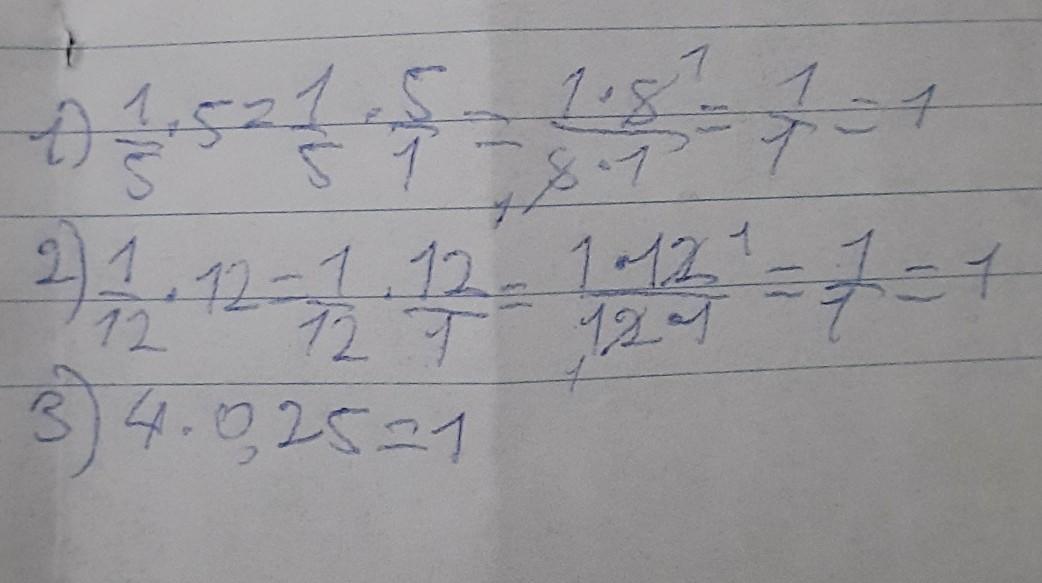 1) 1/5 · 5 = 1/5 · 5/1 = 1·5¹/₁5·1 = 1/1 = 1
2) 1/12 · 12 = 1/12 · 12/1 = 1·12¹/₁12·1 = 1/1 = 1
3) 4 · 0,25 = 1